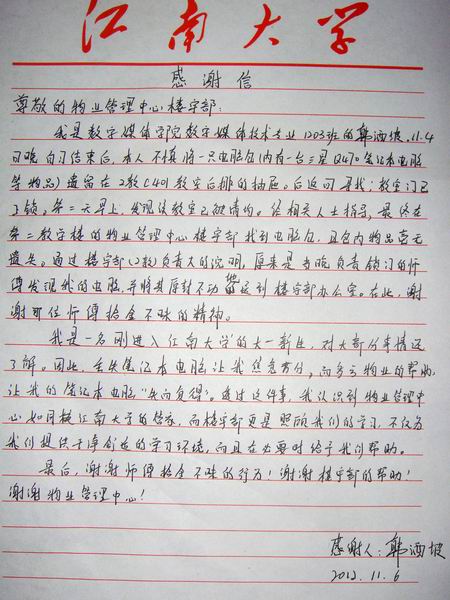 江南大学
感谢信
尊敬的物业管理中心楼宇部:
我是数字媒体学院数字媒体技术专业1203班的韩洒坡.11.4
日晚自习结束后,本人不慎将一只电脑包(内有一台三星Q470笔记本电脑
等物品)遗留在2教C401教室后排的抽屉。后返回寻找;教室门已
了锁。第二天早上,发现该教室已被清扫。经相关人士指导,最终在
第二教学楼的物业管理中心楼宇部找到电脑包,且包内物品毫无
遗失。通过楼宇部(2教)负责人的说明,原来是当晚负责锁门的师
傅发现我的电脑并将其原封不动地送到楼宇部办公室。在此,谢
谢那位师傅拾金不昧的精神。
我是一名刚进入江南大学的大一新生,对大部分事情还
了解。因此,丢失笔记本电脑让我焦急万分,而多亏物业的帮助,
让我的笔记本电脑“失而复得”。通过这件事,我认识到物业管理中
心如同撑江南大学的管家,而楼宇部更是照顾我们的学习,不仅为
我们提供干净舒适的学习环境,而且在必要时给予我们帮助。
最后,谢谢师傅拾金不昧的行为!谢谢楼宇部的帮助!
谢谢物业管理中心!
感谢人:韩洒坡
2012.11.6